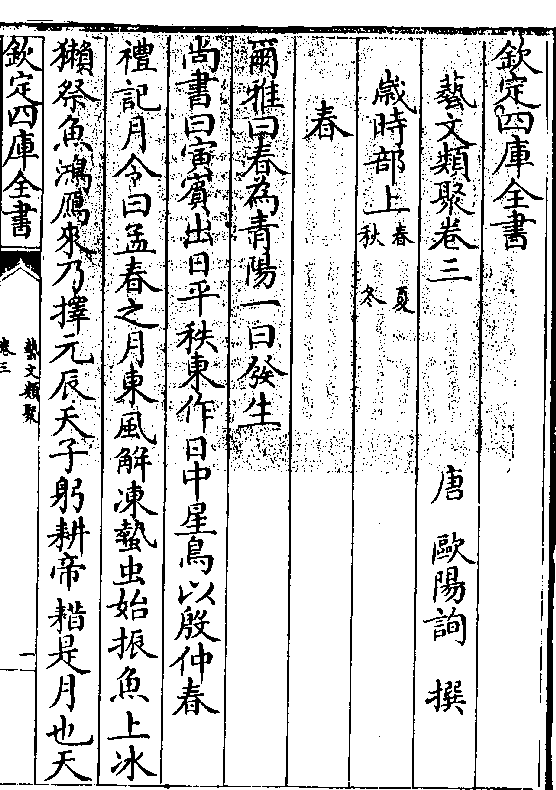 欽定四庫全書
藝文類聚卷三
唐 歐陽詢 撰
歳時部上 春夏秋冬
春
爾雅曰春為青陽一曰發生
尚書曰寅賓出日平秩東作日中星鳥以殷仲春
禮記月令曰孟春之月東風解凍蟄虫始振魚上冰
獺祭魚鴻鴈來乃擇元辰天子躬耕帝耤是月也天
欽定四庫全書
藝文類聚
卷三
一